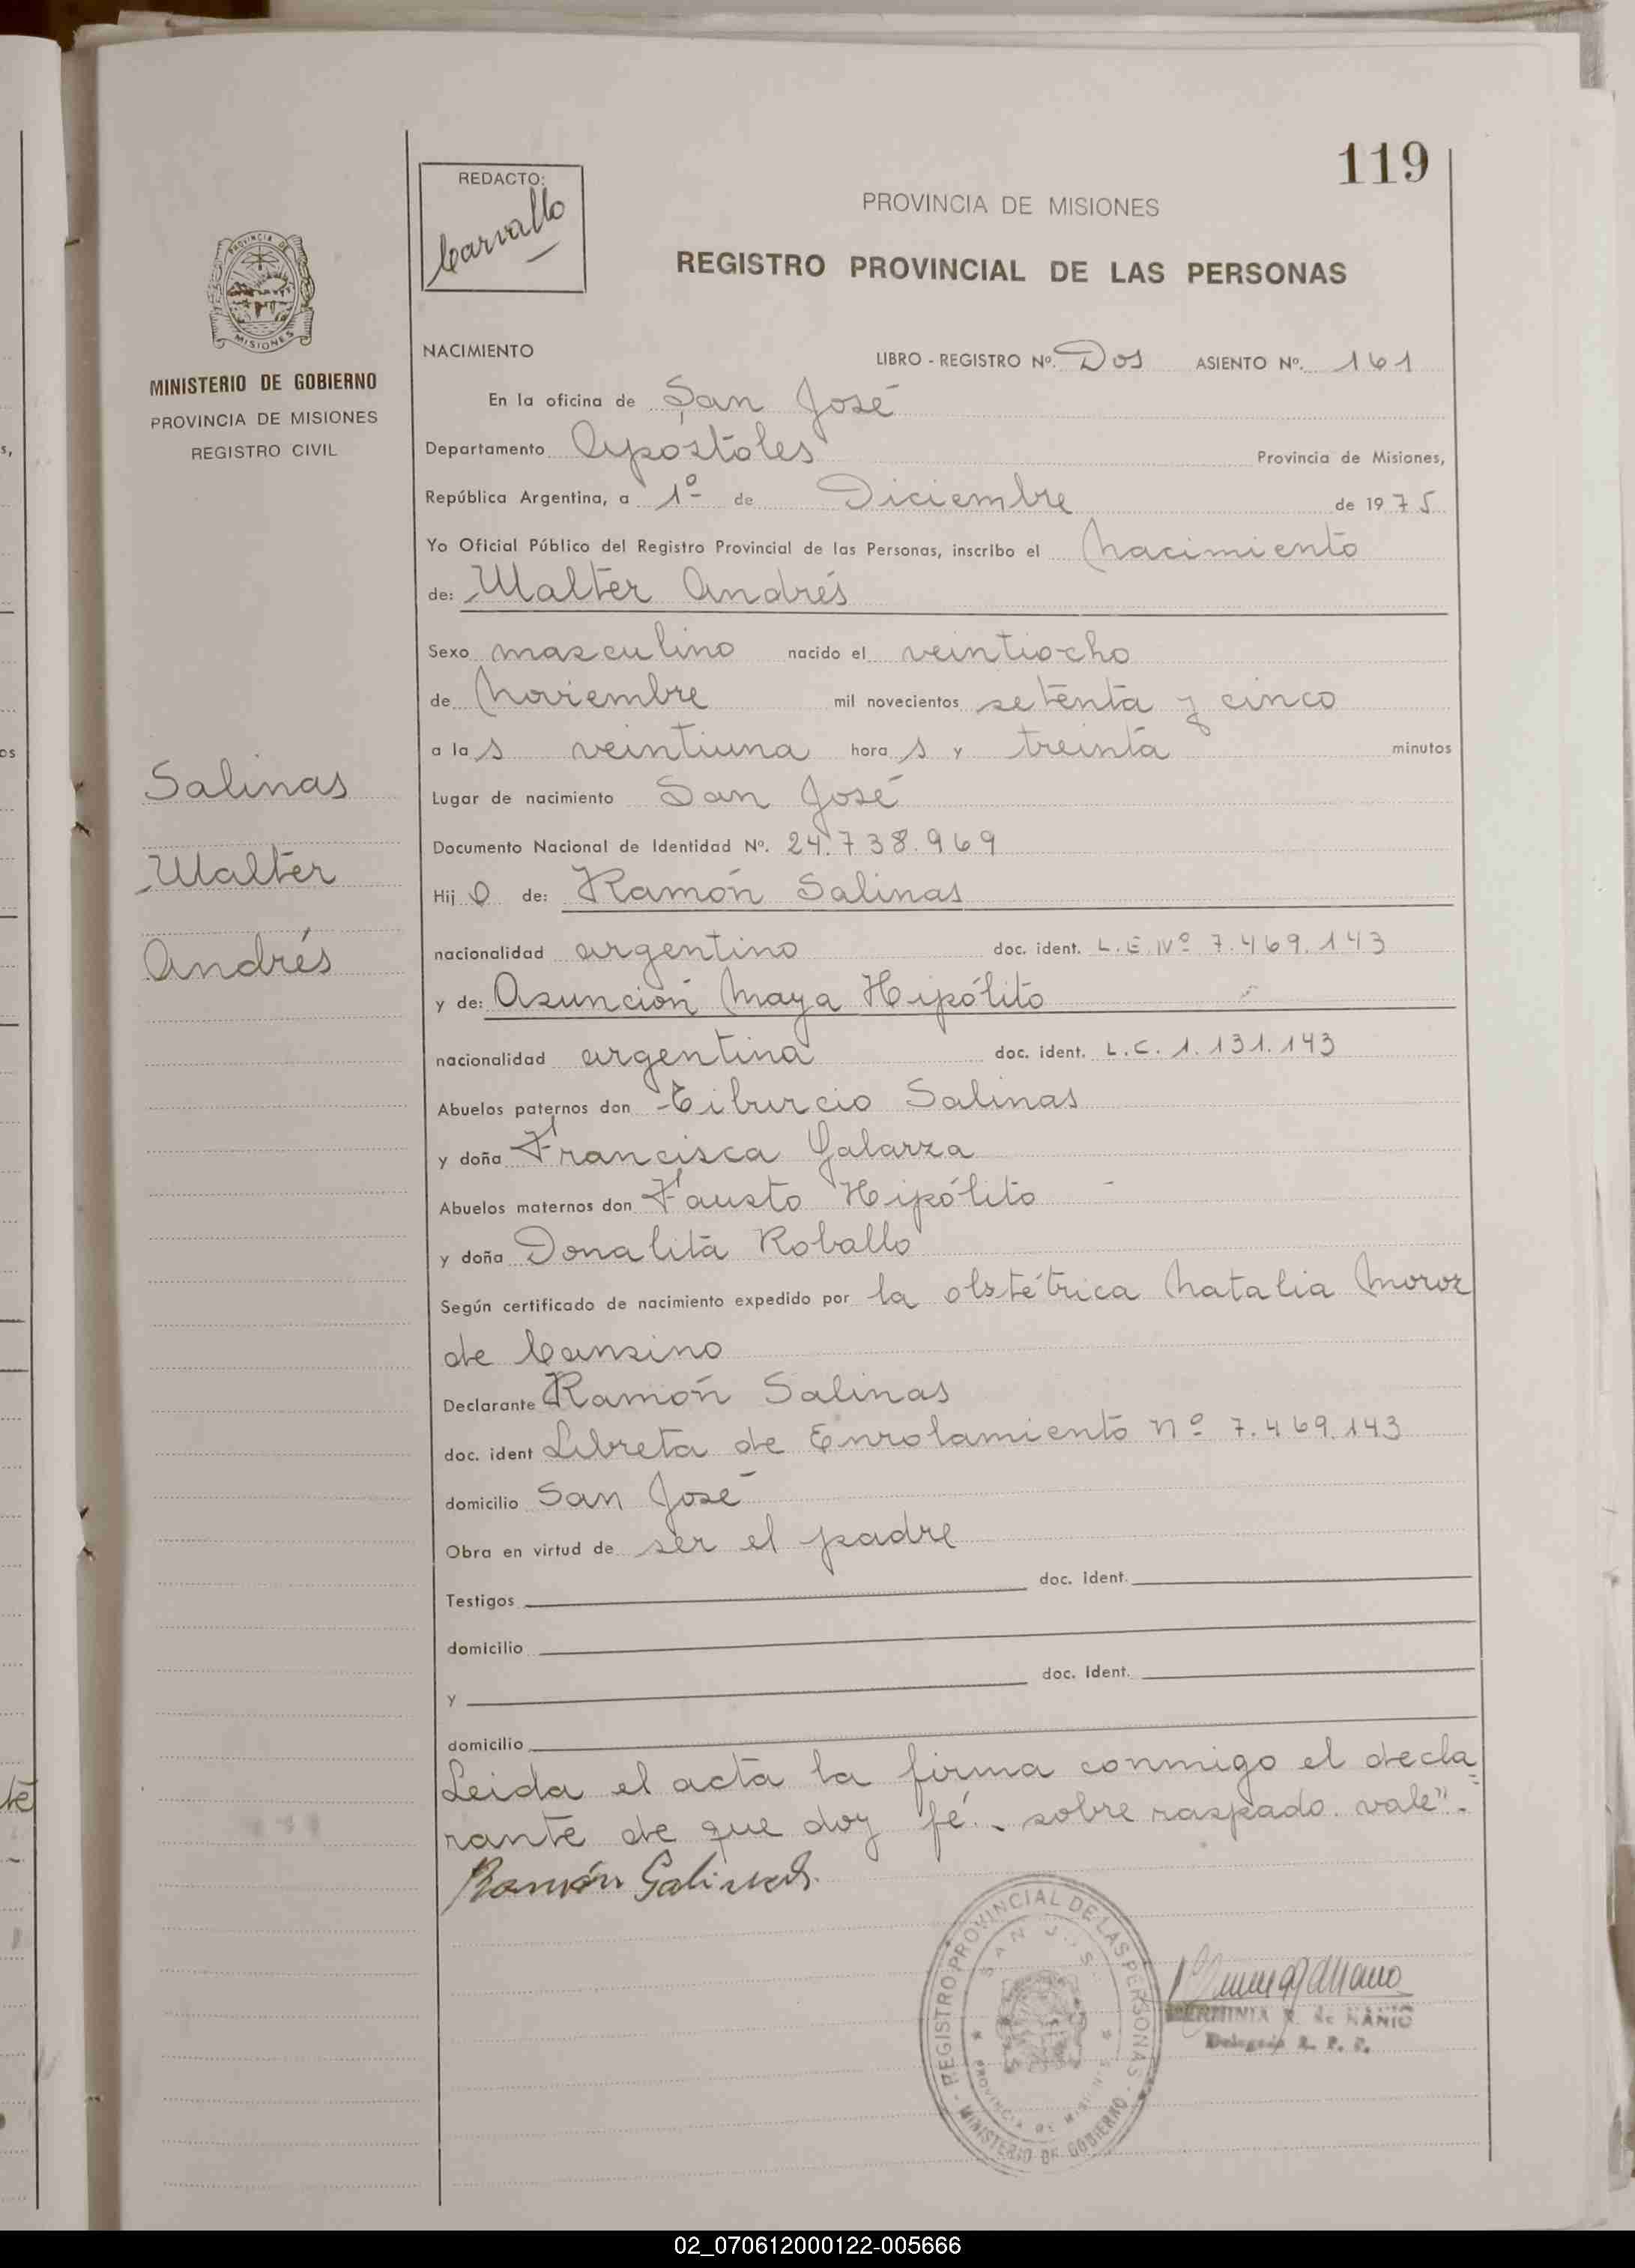 119
REDACTO:
Carvallo
PROVINCIA DE MISIONES
REGISTRO PROVINCIAL DE LAS PERSONAS
PROVINCIA DE
MISIONES
MINISTERIO DE GOBIERNO
PROVINCIA DE MISIONES
REGISTRO CIVIL
Salinas
Walter
Andrés
NACIMIENTO LIBRO - REGISTRO Nº. Dos ASIENTO Nº. 161
En la oficina de San José
Departamento Apóstoles Provincia de Misiones,
República Argentina, a 1º de Diciembre de 1975
Yo Oficial Público del Registro Provincial de las Personas, inscribo el Nacimiento
de: Walter Andrés
Sexo masculino nacido el veintiocho
de Noviembre mil novecientos setenta y cinco
a las veintiuna horas y treinta minutos
Lugar de nacimiento San José
Documento Nacional de Identidad Nº. 24.738.969
Hijo de: Ramón Salinas
nacionalidad argentino doc. ident. L.E.Nº 7.469.143
y de: Asunción Maya Hipólito
nacionalidad argentina doc. ident. L.C. 1.131.143
Abuelos paternos don Tiburcio Salinas
y doña Francisca Galarza
Abuelos maternos don Fausto Hipólito
y doña Donalita Roballo
Según certificado de nacimiento expedido por la obstétrica Natalia Moroz
de Cansino
Declarante Ramón Salinas
doc. ident Libreta de Enrolamiento Nº 7.469.143
domicilio San José
Obra en virtud de ser el padre
Testigos doc. ident.
domicilio
y doc. ident.
domicilio
Leida el acta la firma conmigo el decla=
rante de que doy fé.- sobre raspado. vale".-
Ramón Salinas
REGISTRO PROVINCIAL DE LAS PERSONAS
SAN JOSE
PROVINCIA DE MISIONES
- MINISTERIO DE GOBIERNO -
HERMINIA R. de NANIO
Delegada R. P. P.
02_070612000122-005666